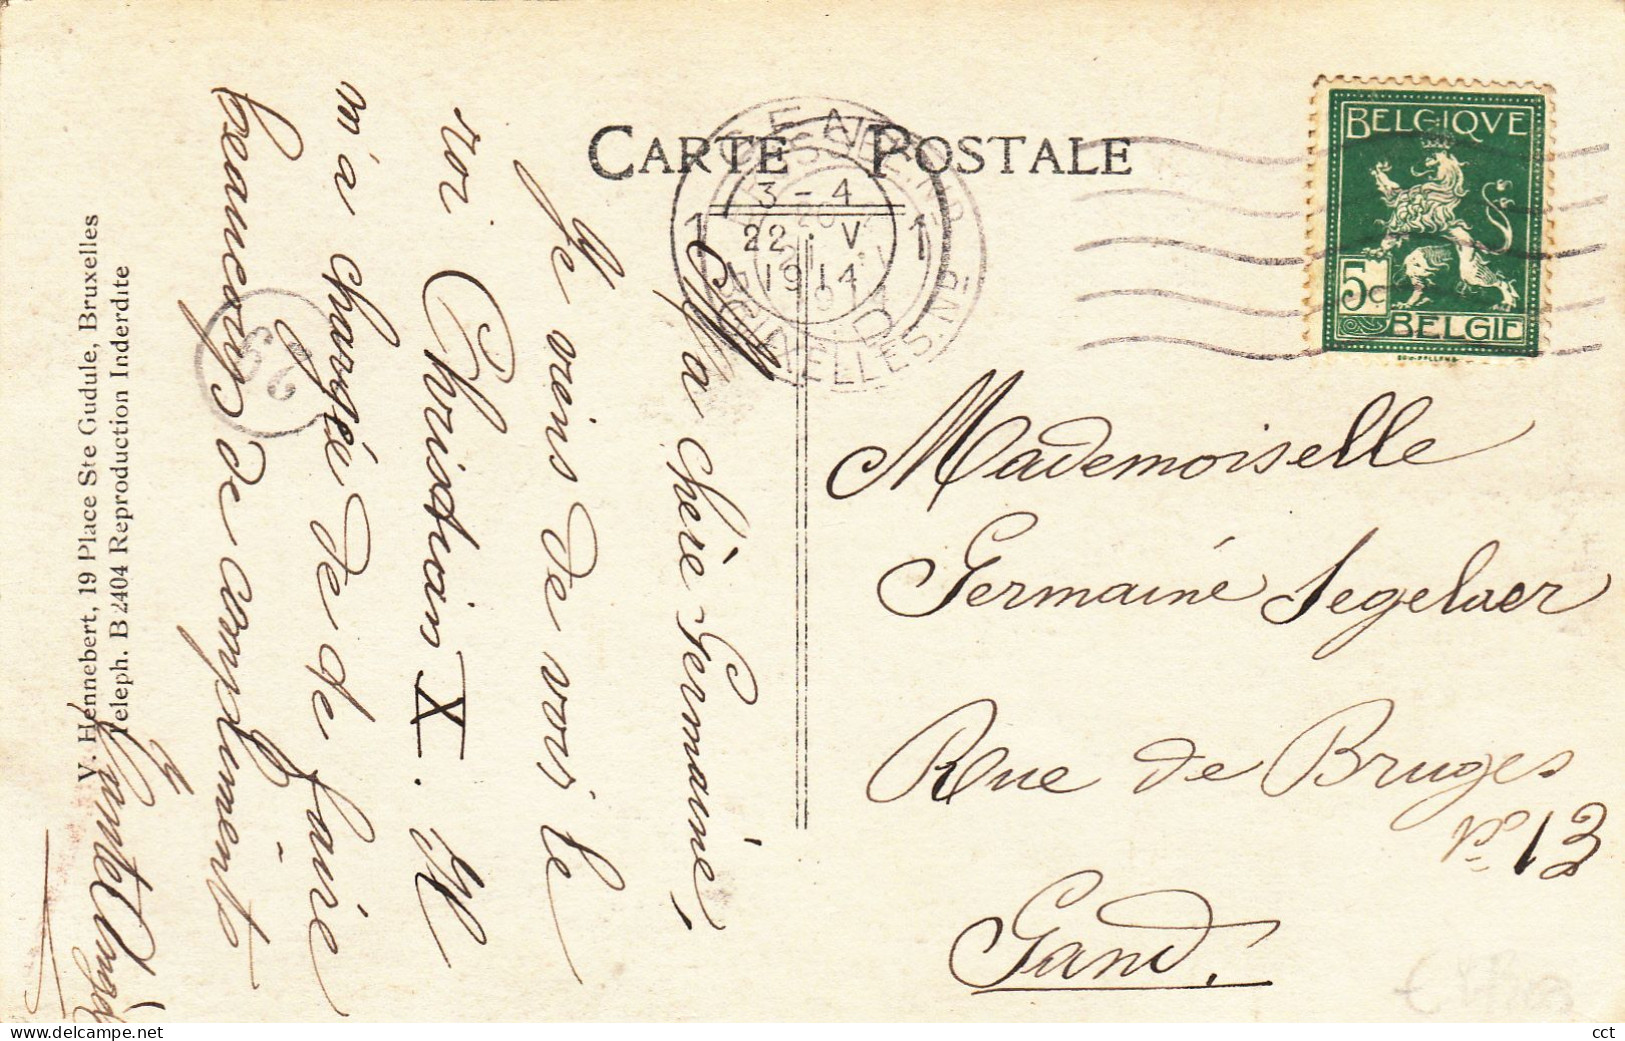 CARTE POSTALE
BELGIQVE
5c
BELGIE
3 - 4
22 V
1914
1 1
BRUXELLES.MP.
Ma chère Germaine,
Je viens de voir le
roi Christian X. Il
m'a chargée de te faire
beaucoup de compliments
Mademoiselle
Germaine Segelaer
Rue de Bruges
no 13
Gand.
V. Hennebert, 19 Place Ste Gudule, Bruxelles
Teleph. B 2404 Reproduction Inderdite
cct